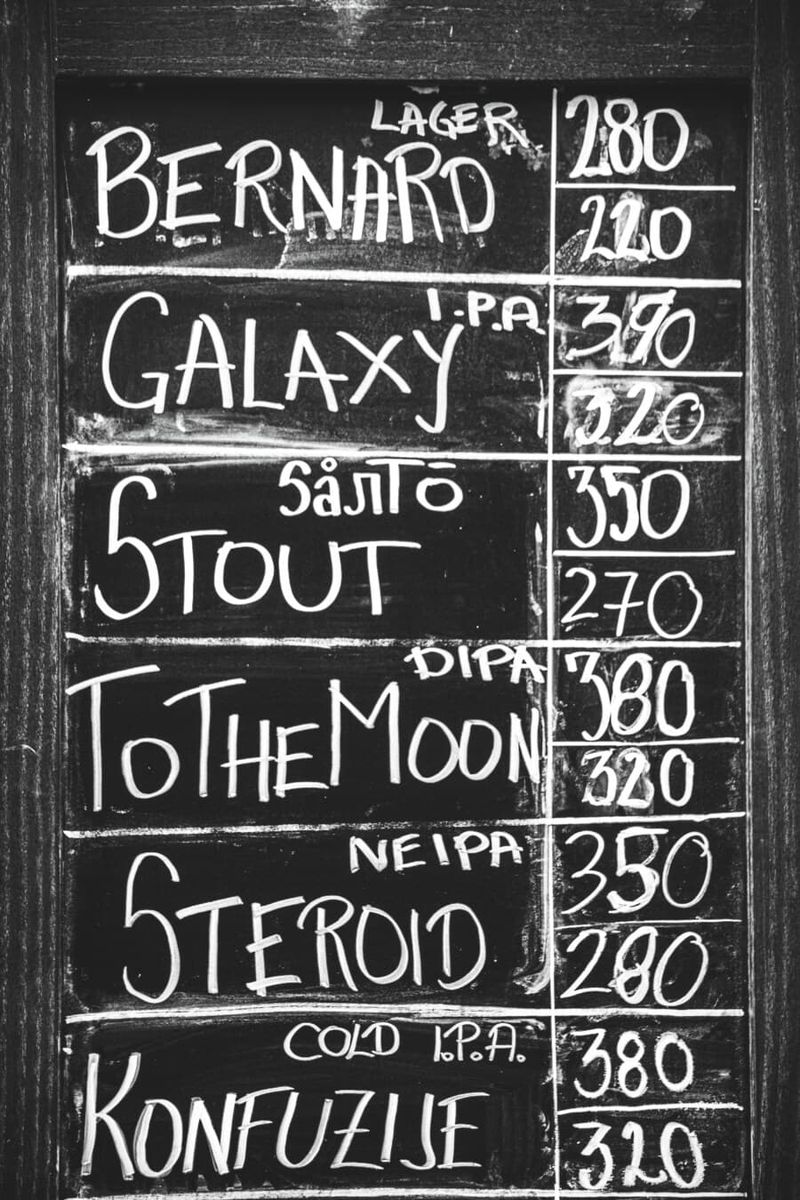 LAGER 280
BERNARD 220
I.P.A 390
GALAXY 320
SåлTō 350
STOUT 270
DIPA 380
TOTHEMOON 320
NEIPA 350
STEROID 280
COLD I.P.A. 380
KONFUZIJE 320